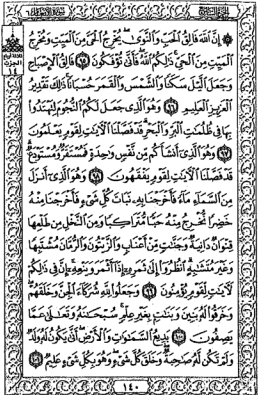 سورة الأنعام الجزء السابع
إِنَّ ٱللَّهَ فَالِقُ ٱلْحَبِّ وَٱلنَّوَىٰ يُخْرِجُ ٱلْحَيَّ مِنَ ٱلْمَيِّتِ وَمُخْرِجُ
ٱلْمَيِّتِ مِنَ ٱلْحَيِّ ذَٰلِكُمُ ٱللَّهُ فَأَنَّىٰ تُؤْفَكُونَ ٩٥ فَالِقُ ٱلْإِصْبَاحِ
وَجَعَلَ ٱلَّيْلَ سَكَنًا وَٱلشَّمْسَ وَٱلْقَمَرَ حُسْبَانًا ذَٰلِكَ تَقْدِيرُ
ٱلْعَزِيزِ ٱلْعَلِيمِ ٩٦ وَهُوَ ٱلَّذِى جَعَلَ لَكُمُ ٱلنُّجُومَ لِتَهْتَدُوا۟
بِهَا فِى ظُلُمَٰتِ ٱلْبَرِّ وَٱلْبَحْرِ قَدْ فَصَّلْنَا ٱلْءَايَٰتِ لِقَوْمٍ يَعْلَمُونَ
٩٧ وَهُوَ ٱلَّذِىٓ أَنشَأَكُم مِّن نَّفْسٍ وَٰحِدَةٍ فَمُسْتَقَرٌّ وَمُسْتَوْدَعٌ
قَدْ فَصَّلْنَا ٱلْءَايَٰتِ لِقَوْمٍ يَفْقَهُونَ ٩٨ وَهُوَ ٱلَّذِىٓ أَنزَلَ
مِنَ ٱلسَّمَآءِ مَآءً فَأَخْرَجْنَا بِهِۦ نَبَاتَ كُلِّ شَىْءٍ فَأَخْرَجْنَا مِنْهُ
خَضِرًا نُّخْرِجُ مِنْهُ حَبًّا مُّتَرَاكِبًا وَمِنَ ٱلنَّخْلِ مِن طَلْعِهَا
قِنْوَانٌ دَانِيَةٌ وَجَنَّٰتٍ مِّنْ أَعْنَابٍ وَٱلزَّيْتُونَ وَٱلرُّمَّانَ مُشْتَبِهًا
وَغَيْرَ مُتَشَٰبِهٍ ٱنظُرُوٓا۟ إِلَىٰ ثَمَرِهِۦٓ إِذَآ أَثْمَرَ وَيَنْعِهِۦٓ إِنَّ فِى ذَٰلِكُمْ
لَءَايَٰتٍ لِّقَوْمٍ يُؤْمِنُونَ ٩٩ وَجَعَلُوا۟ لِلَّهِ شُرَكَآءَ ٱلْجِنَّ وَخَلَقَهُمْ
وَخَرَقُوا۟ لَهُۥ بَنِينَ وَبَنَٰتٍۭ بِغَيْرِ عِلْمٍ سُبْحَٰنَهُۥ وَتَعَٰلَىٰ عَمَّا
يَصِفُونَ ١٠٠ بَدِيعُ ٱلسَّمَٰوَٰتِ وَٱلْأَرْضِ أَنَّىٰ يَكُونُ لَهُۥ وَلَدٌ
وَلَمْ تَكُن لَّهُۥ صَٰحِبَةٌ وَخَلَقَ كُلَّ شَىْءٍ وَهُوَ بِكُلِّ شَىْءٍ عَلِيمٌ ١٠١
١٤٠